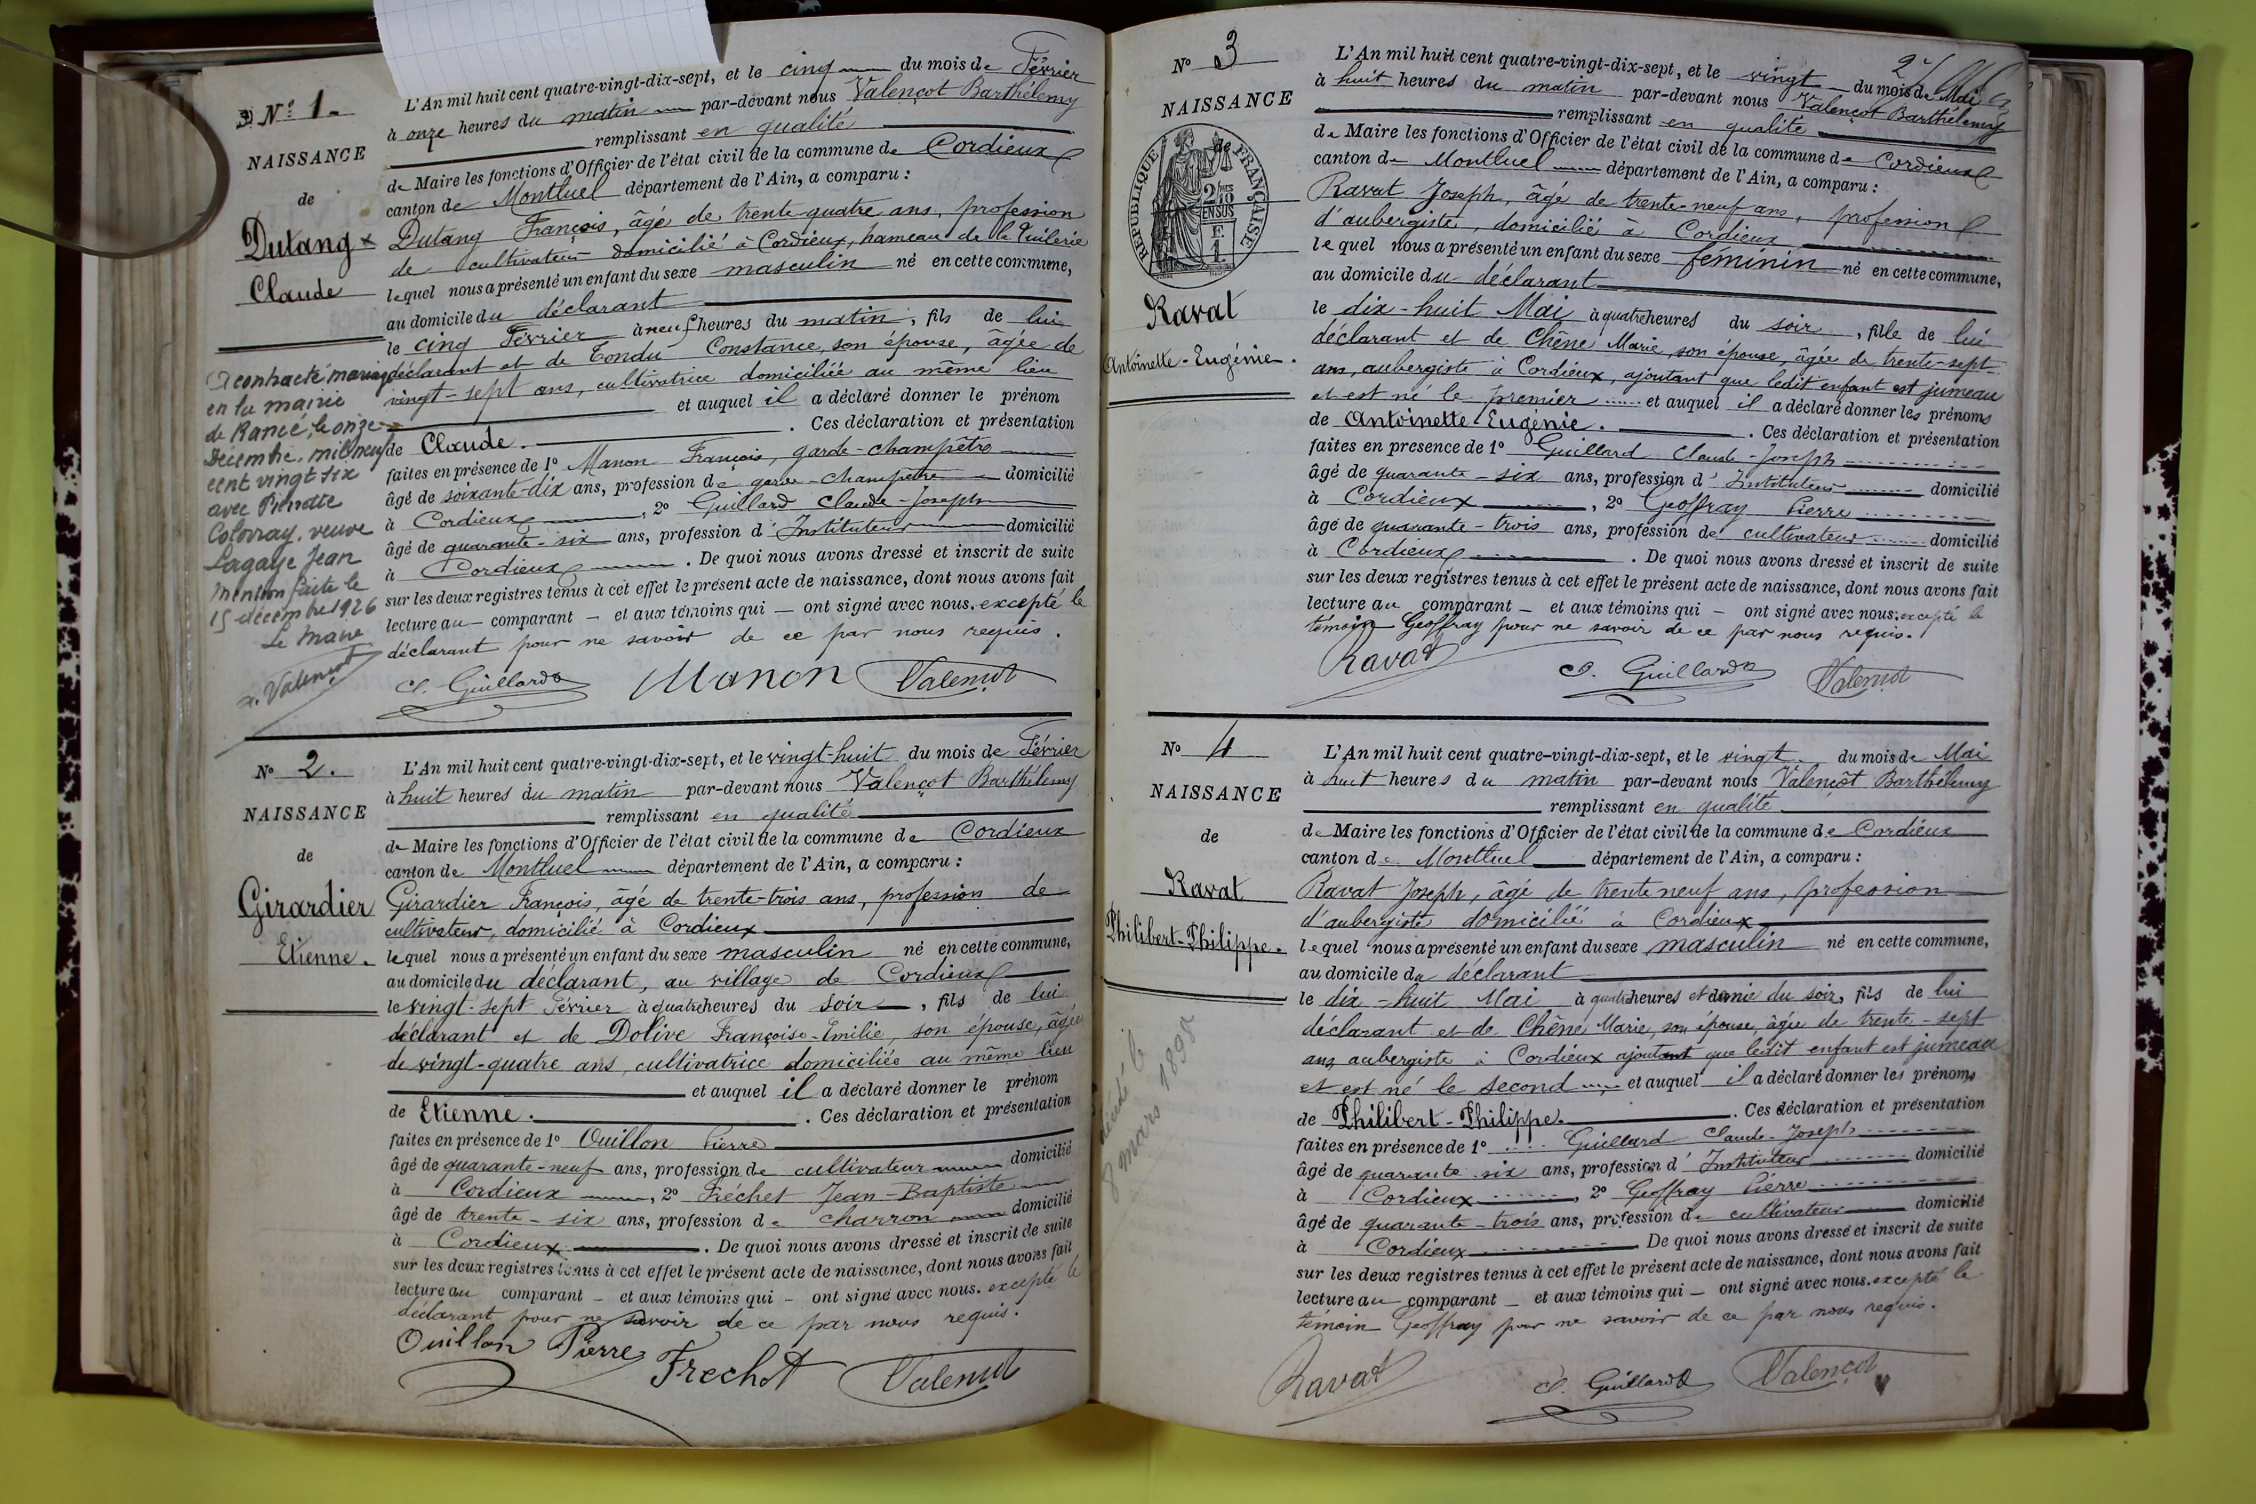 N° 1.
NAISSANCE
de
Dutang
Claude
A contracté mariage
en la mairie
de Rancé, le onze
Décembre mil neuf
cent vingt six
avec Pierrette
veuve
Lagaye Jean
Mention faite le
15 décembre 1926
Le Maire
L'An mil huit cent quatre-vingt-dix-sept, et le cinq du mois de Février
à onze heures du matin par-devant nous Valençot Barthélemy
remplissant en qualité
de Maire les fonctions d'Officier de l'état civil de la commune de Cordieux
canton de Montluel département de l'Ain, a comparu :
Dutang François, âgé de trente-quatre ans, profession
de cultivateur domicilié à Cordieux, hameau de la Tuilerie
lequel nous a présenté un enfant du sexe masculin né en cette commune,
au domicile du déclarant
le cinq Février à neuf heures du matin, fils de lui
déclarant et de Tondu Constance, son épouse, âgée de
vingt-sept ans, cultivatrice domiciliée au même lieu
et auquel il a déclaré donner le prénom
de Claude. Ces déclaration et présentation
faites en présence de 1° Manon François, garde-champêtre
âgé de soixante-dix ans, profession de garde-champêtre domicilié
à Cordieux, 2° Guillard Claude-Joseph
âgé de quarante-six ans, profession d'Instituteur domicilié
à Cordieux. De quoi nous avons dressé et inscrit de suite
sur les deux registres tenus à cet effet le présent acte de naissance, dont nous avons fait
lecture au comparant et aux témoins qui ont signé avec nous. excepté le
déclarant pour ne savoir de ce par nous requis.
Cl. Guillard Manon Valençot
N° 2.
NAISSANCE
de
Girardier
Etienne.
L'An mil huit cent quatre-vingt-dix-sept, et le vingt-huit du mois de Février
à huit heures du matin par-devant nous Valençot Barthélemy
remplissant en qualité
de Maire les fonctions d'Officier de l'état civil de la commune de Cordieux
canton de Montluel département de l'Ain, a comparu :
Girardier François, âgé de trente-trois ans, profession de
cultivateur, domicilié à Cordieux
lequel nous a présenté un enfant du sexe masculin né en cette commune,
au domicile du déclarant, au village de Cordieux
le vingt-sept Février à quatre heures du soir, fils de lui
déclarant et de Dolive Françoise-Emilie, son épouse, âgée
de vingt-quatre ans, cultivatrice domiciliée au même lieu
et auquel il a déclaré donner le prénom
de Etienne. Ces déclaration et présentation
faites en présence de 1° Ouillon Pierre
âgé de quarante-neuf ans, profession de cultivateur domicilié
à Cordieux, 2° Fréchet Jean-Baptiste
âgé de trente-six ans, profession de charron domicilié
à Cordieux. De quoi nous avons dressé et inscrit de suite
sur les deux registres tenus à cet effet le présent acte de naissance, dont nous avons fait
lecture au comparant et aux témoins qui ont signé avec nous. excepté le
déclarant pour ne savoir de ce par nous requis.
Ouillon Pierre Frechet Valençot
N° 3
NAISSANCE
de
RÉPUBLIQUE FRANÇAISE
Ravat
Antoinette-Eugénie.
L'An mil huit cent quatre-vingt-dix-sept, et le vingt du mois de Mai
à huit heures du matin par-devant nous Valençot Barthélemy
remplissant en qualité
de Maire les fonctions d'Officier de l'état civil de la commune de Cordieux
canton de Montluel département de l'Ain, a comparu :
Ravat Joseph, âgé de trente-neuf ans, profession
d'aubergiste, domicilié à Cordieux
lequel nous a présenté un enfant du sexe féminin né en cette commune,
au domicile du déclarant
le dix-huit Mai à quatre heures du soir, fille de lui
déclarant et de Chêne Marie, son épouse, âgée de trente-sept
ans, aubergiste à Cordieux, ajoutant que ledit enfant est jumeau
et est né le premier et auquel il a déclaré donner les prénoms
de Antoinette Eugénie. Ces déclaration et présentation
faites en présence de 1° Guillard Claude-Joseph
âgé de quarante-six ans, profession d'Instituteur domicilié
à Cordieux, 2° Geoffray Pierre
âgé de quarante-trois ans, profession de cultivateur domicilié
à Cordieux. De quoi nous avons dressé et inscrit de suite
sur les deux registres tenus à cet effet le présent acte de naissance, dont nous avons fait
lecture au comparant et aux témoins qui ont signé avec nous. excepté le
témoin Geoffray pour ne savoir de ce par nous requis.
Ravat Cl. Guillard Valençot
N° 4
NAISSANCE
de
Ravat
Philibert-Philippe.
décédé le
8 mars 1898
L'An mil huit cent quatre-vingt-dix-sept, et le vingt du mois de Mai
à huit heures du matin par-devant nous Valençot Barthélemy
remplissant en qualité
de Maire les fonctions d'Officier de l'état civil de la commune de Cordieux
canton de Montluel département de l'Ain, a comparu :
Ravat Joseph, âgé de trente neuf ans, profession
d'aubergiste domicilié à Cordieux
lequel nous a présenté un enfant du sexe masculin né en cette commune,
au domicile du déclarant
le dix-huit Mai à quatre heures et demie du soir, fils de lui
déclarant et de Chêne Marie, son épouse, âgée de trente-sept
ans, aubergiste à Cordieux ajoutant que ledit enfant est jumeau
et est né le second et auquel il a déclaré donner les prénoms
de Philibert-Philippe. Ces déclaration et présentation
faites en présence de 1° Guillard Claude-Joseph
âgé de quarante six ans, profession d'Instituteur domicilié
à Cordieux, 2° Geoffray Pierre
âgé de quarante-trois ans, profession de cultivateur domicilié
à Cordieux De quoi nous avons dressé et inscrit de suite
sur les deux registres tenus à cet effet le présent acte de naissance, dont nous avons fait
lecture au comparant et aux témoins qui ont signé avec nous. excepté le
témoin Geoffray pour ne savoir de ce par nous requis.
Ravat Cl. Guillard Valençot